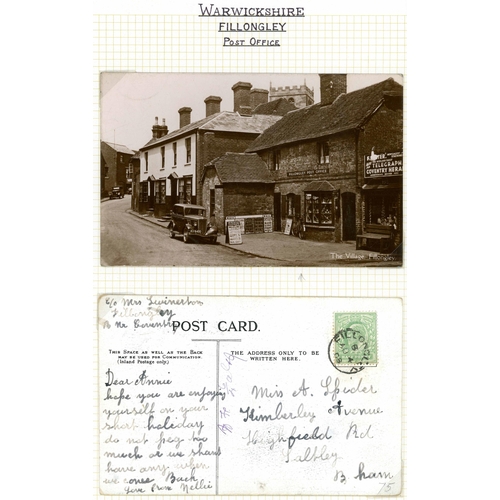 WARWICKSHIRE
FILLONGLEY
POST OFFICE
TELEGRAPH
COVENTRY HERALD
The Village. Fillongley
c/o Mrs
Fillongley
Nr Coventry
POST CARD.
THIS SPACE AS WELL AS THE BACK
MAY BE USED FOR COMMUNICATION.
(Inland Postage only)
THE ADDRESS ONLY TO BE
WRITTEN HERE.
FILLONGLEY
Dear Annie
hope you are enjoying
yourself on your
short holiday
do not peg too
much or we shant
have any when
we come Back
love from Nellie
Miss A. Spider
Kimberley Avenue
Highfield Rd
Saltley
B ham
75